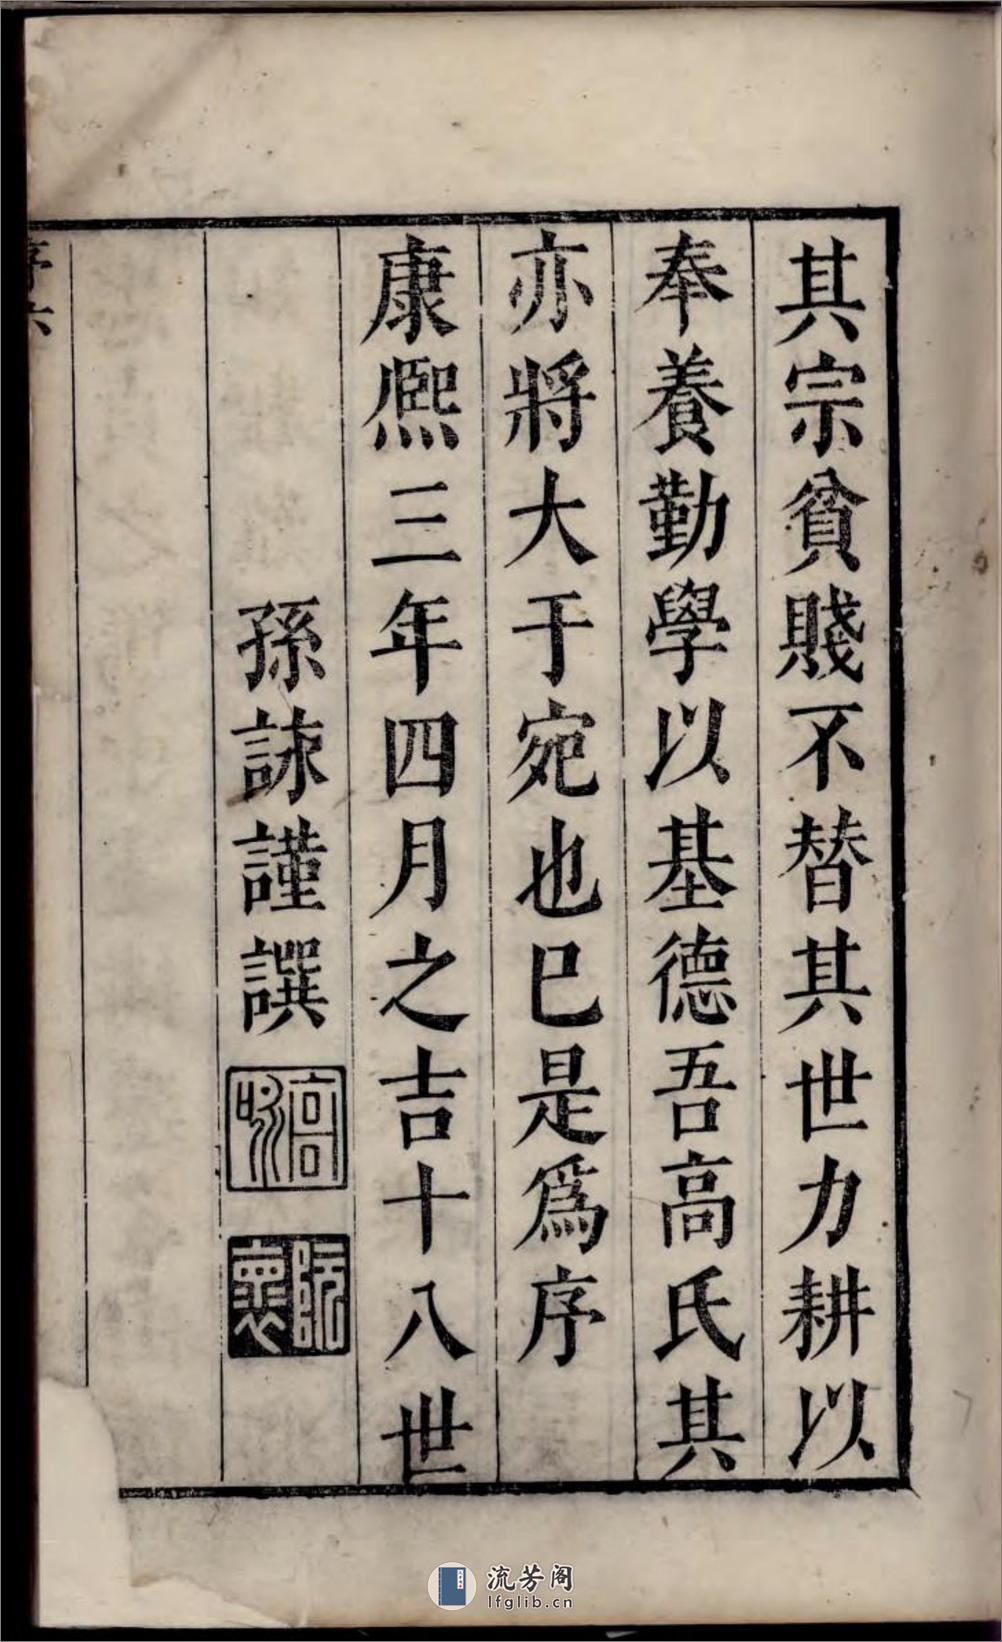 其宗貧賤不替其世力耕以
奉養勤學以基德吾高氏其
亦將大于宛也巳是爲序
康熙三年四月之吉十八世
孫詠謹譔
高咏
阮褱
流芳阁
lfglib.cn